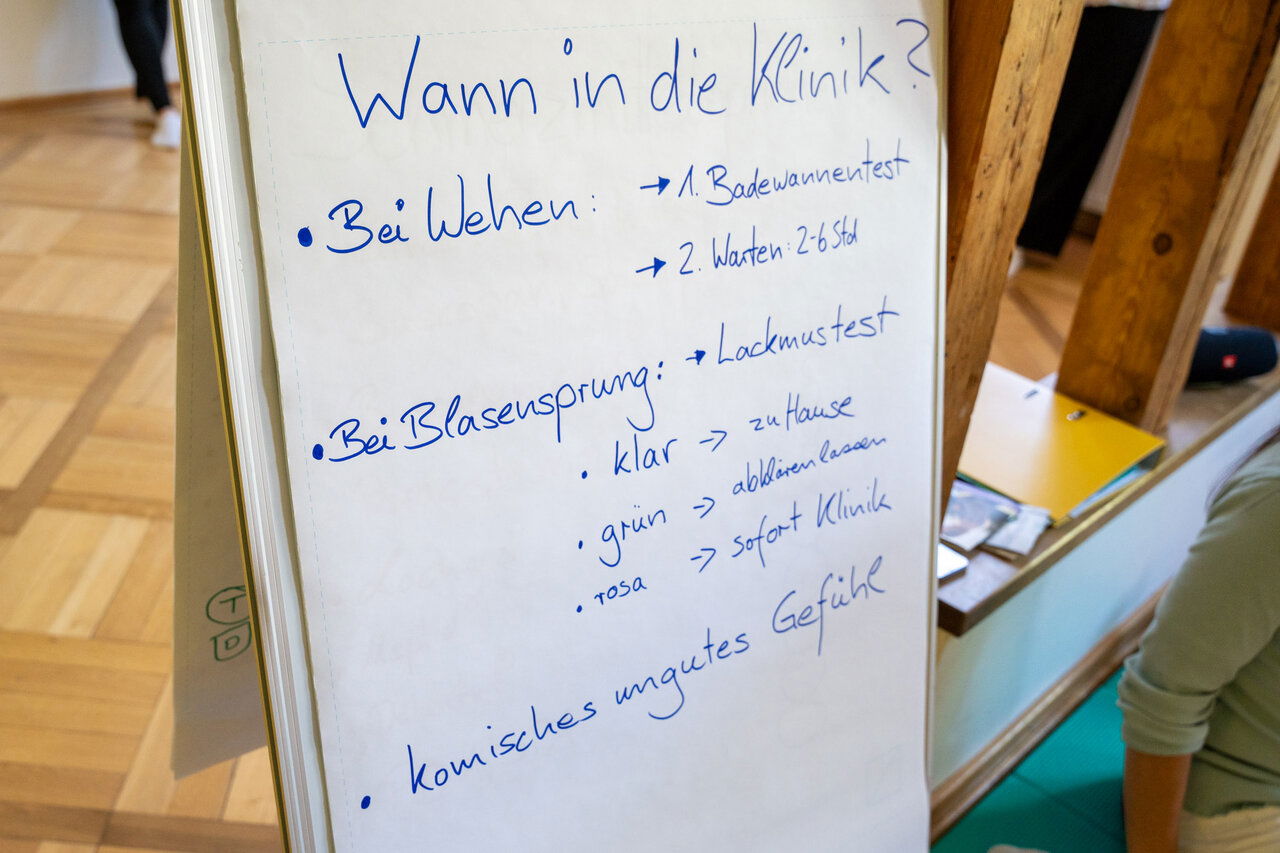 Wann in die Klinik?
• Bei Wehen: → 1. Badewannentest
→ 2. Warten: 2-6 Std
• Bei Blasensprung: → Lackmustest
• klar → zu Hause
• grün → abklären lassen
• rosa → sofort Klinik
• komisches ungutes Gefühl
T
D